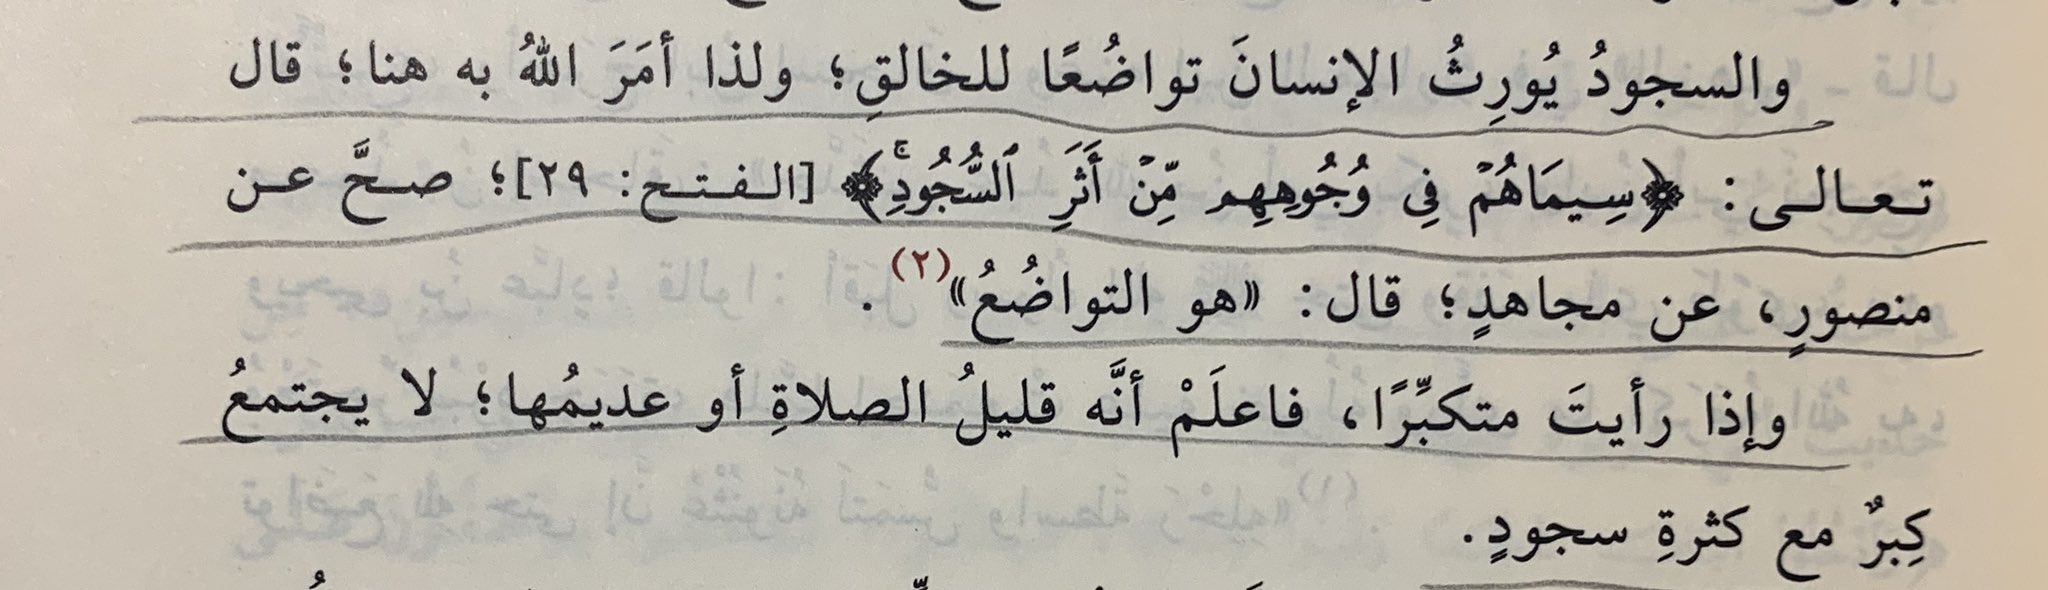 والسجودُ يُورِثُ الإنسانَ تواضُعًا للخالقِ؛ ولذا أمَرَ اللهُ به هنا؛ قال
تعالى: ﴿سِيمَاهُمْ فِي وُجُوهِهِم مِّنْ أَثَرِ ٱلسُّجُودِۚ﴾ [الفتح: ٢٩]؛ صحَّ عن
منصورٍ، عن مجاهدٍ؛ قال: «هو التواضُعُ»(٢).
وإذا رأيتَ متكبِّرًا، فاعلَمْ أنَّه قليلُ الصلاةِ أو عديمُها؛ لا يجتمعُ
كِبرٌ مع كثرةِ سجودٍ.